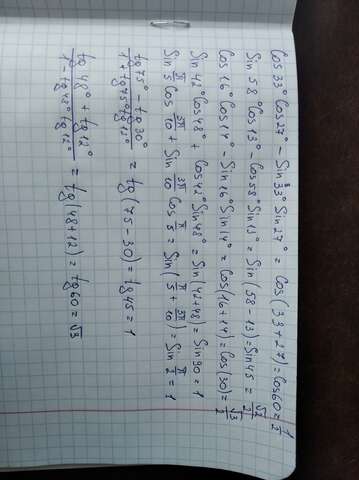 Cos 33° Cos 27° - Sin 33° Sin 27° = Cos (33+27) = Cos 60 = 1/2
Sin 58° Cos 13° - Cos 58° Sin 13° = Sin (58 - 13) = Sin 45 = √2/2
Cos 16° Cos 14° - Sin 16° Sin 14° = Cos (16+14) = Cos (30) = √3/2
Sin 42° Cos 48° + Cos 42° Sin 48° = Sin 42+48 = Sin 90 = 1
Sin π/5 Cos 3π/10 + Sin 3π/10 Cos π/5 = Sin (π/5 + 3π/10) = Sin π/2 = 1
(tg 75° - tg 30°)/(1 + tg 75° tg °) = tg (75 - 30) = tg 45 = 1
(tg 48° + tg 12°)/(1 - tg 48° tg 12°) = tg (48+12) = tg 60 = √3